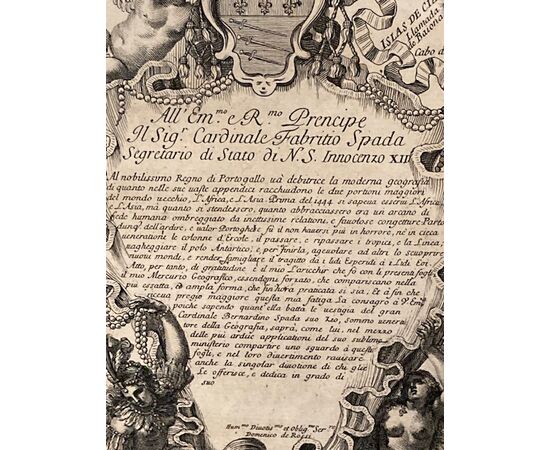 ISLAS DE
Llamada
de Baiona
Cabo d
All' Em.mo e R.mo Prencipe
Il Sig.r Cardinale Fabritio Spada
Segretario di Stato di N. S. Innocenzo XII
Al nobilissimo Regno di Portogallo uà debitrice la moderna geografia
di quanto nelle sue uaste appendici racchiudono le due portioni maggiori
del mondo uecchio, L'Africa, e L'Asia. Prima del 1444 si sapeua esserui L'Africa,
e L'Asia, mà quanto si stendessero, quanto abbracciassero era un arcano di
fede humana ombreggiato da inettissime relationi, e fauolose congetture. Parto
dunq.e dell'ardire, e ualor Portoghese fù il non hauersi più in horrore, nè in cieca
ueneratione le colonne d'Ercole, il passare, e ripassare i tropici, e la Linea;
uagheggiare il polo Antartico; e per finirla, ageuolare ad altri lo scuoprir
nuoui mondi, e render famigliare il tragitto da i lidi Esperidi à i Lidi Eoi.
Atto, per tanto, di gratitudine è il mio L'aricchir che fò con le presenti fogli
il mio Mercurio Geografico, essendomi forzato, che compariscano nella
più esatta, et ampla forma, che fin'hora praticata si sia; Et à fin che
riceua pregio maggiore questa mia fatiga La consagro à V. Em.
poiche sapendo quant'ella batta le uestigia del gran
Cardinale Bernardino Spada suo Zio, sommo uenera
tore della Geografia, saprà, come lui, nel mezzo
delle più ardue applicationi del suo sublime
ministerio compartire uno sguardo à questi
fogli, e nel loro diuertimento rauisare
anche la singolar diuotione di chi glie
Le offerisce, e dedica in grado di
suo
Hum.mo Diuotis.mo et Oblig.mo Ser.re
Domenico de Rossi